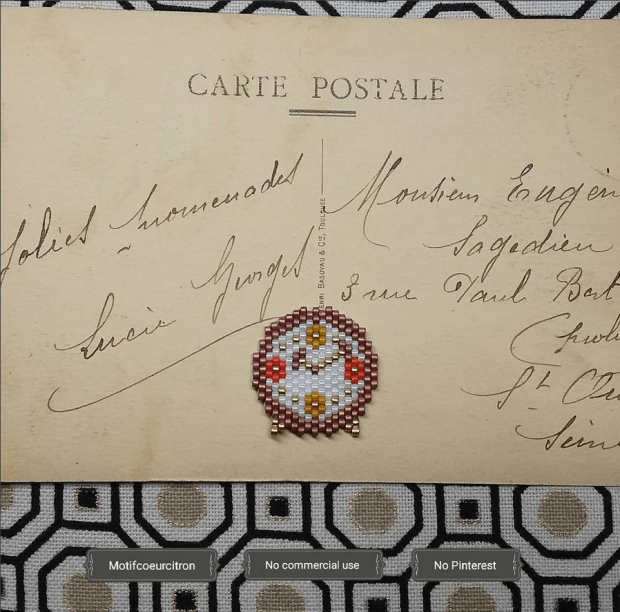 CARTE POSTALE
Jolies promenades
Lucie Georges
HENRI BASUYAU & CIE, TOULOUSE
Monsieur Eugèn
3 rue Paul Bert
St Ou
Seine
Motifcoeurcitron
No commercial use
No Pinterest